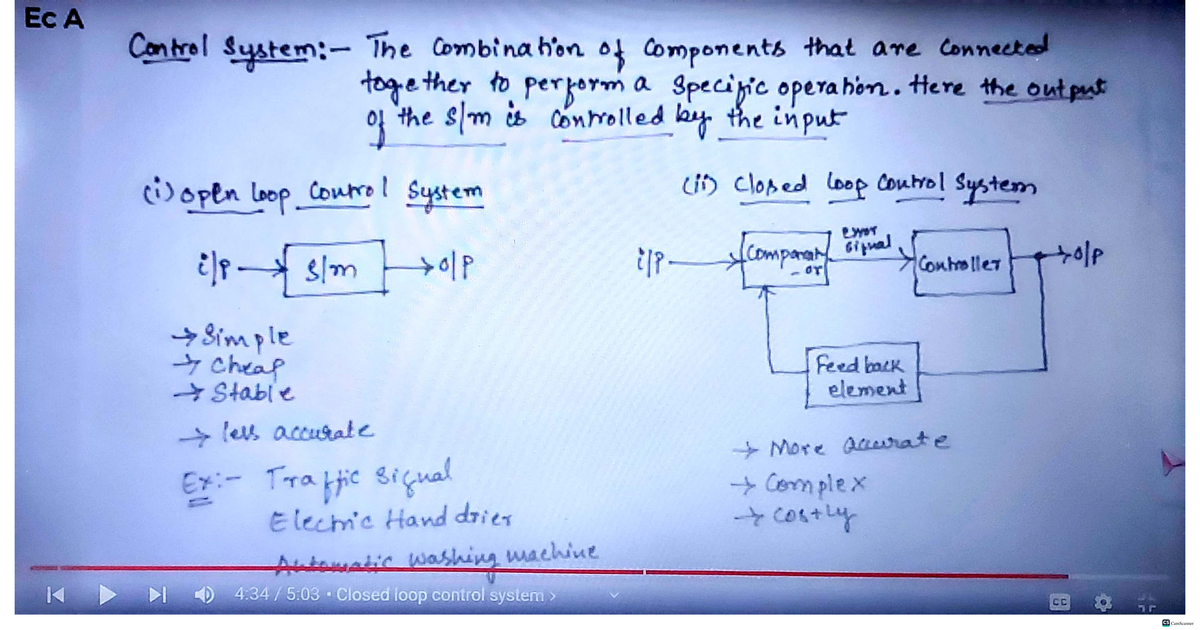 Ec A
Control System:- The Combination of Components that are Connected
together to perform a specific operation. Here the output
of the s/m is Controlled by the input
(i) open loop Control System
(ii) Closed loop Control System
i/p
s/m
o/p
i/p
Comparat
-or
error
signal
Controller
o/p
Feedback
element
→ Simple
→ Cheap
→ Stable
→ less accurate
Ex:- Traffic Signal
Electric Hand drier
Automatic washing machine
→ More accurate
→ Complex
→ Costly
4:34 / 5:03 • Closed loop control system >
CC
CS CamScanner